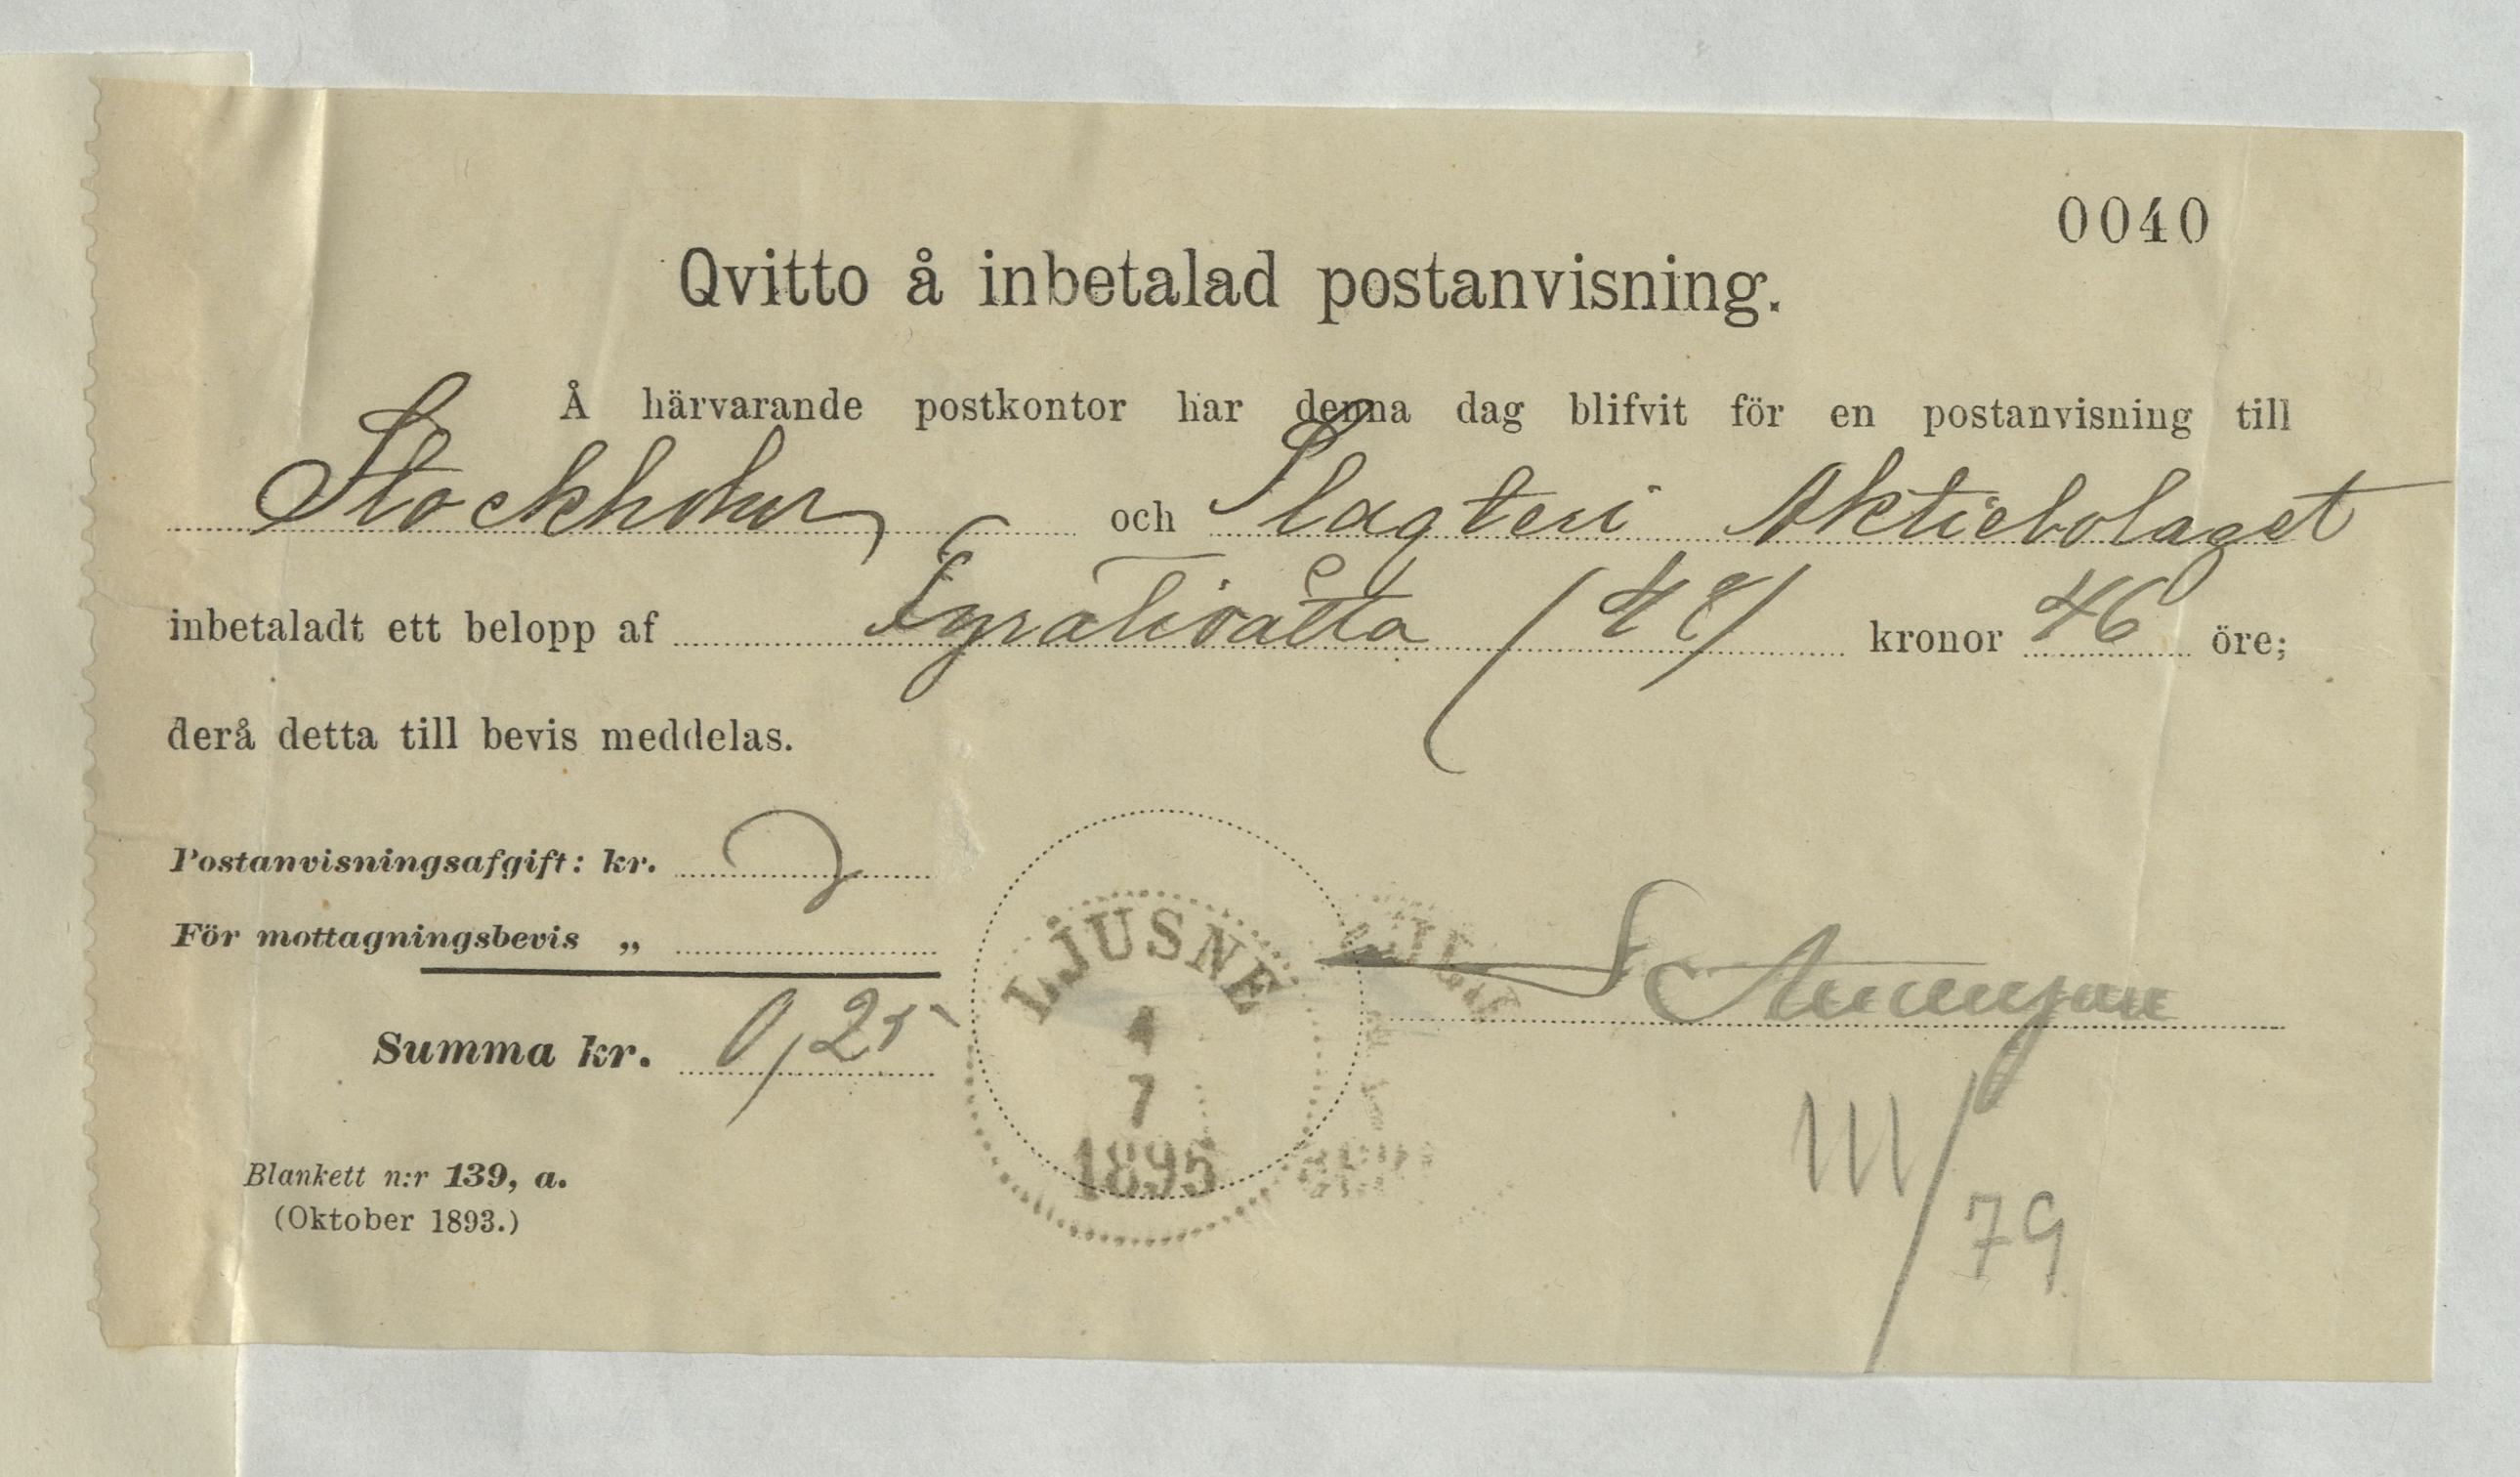 0040
Qvitto å inbetalad postanvisning.
Å härvarande postkontor har denna dag blifvit för en postanvisning till
Stockholm och Slagteri Aktiebolaget
inbetaladt ett belopp af Fyratioåtta (48) kronor 46 öre;
derå detta till bevis meddelas.
Postanvisningsafgift: kr.
För mottagningsbevis „
Summa kr. 0,25
LJUSNE
4
7
1895
Blankett n:r 139, a.
(Oktober 1893.)
111/79